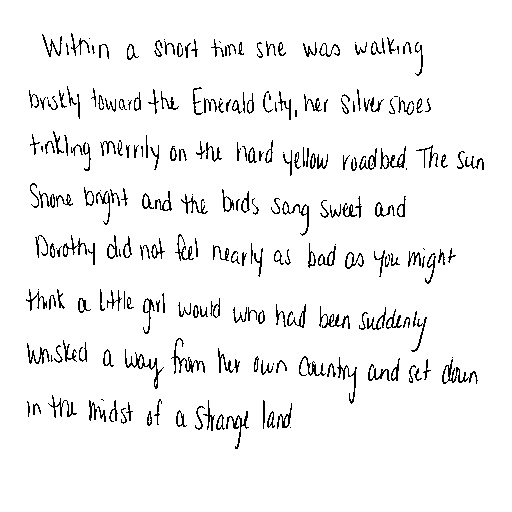 Within a short time she was walking
briskly toward the Emerald City, her Silver Shoes
tinkling merrily on the hard yellow roadbed. The sun
Shone bright and the birds sang sweet and
Dorothy did not feel nearly as bad as you might
think a little girl would who had been suddenly
whisked a way from her own country and set down
in the midst of a strange land